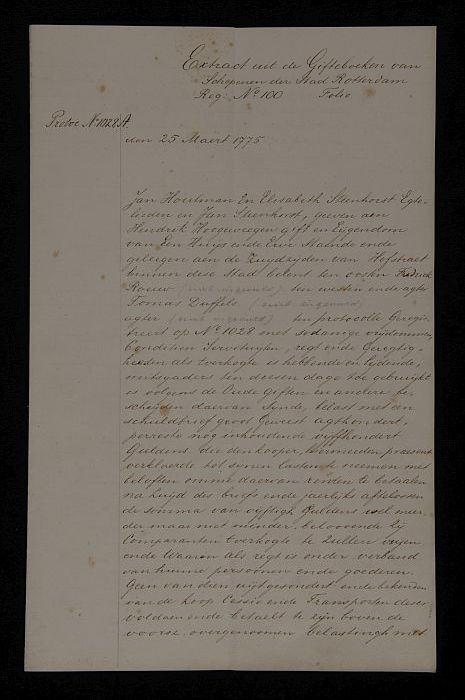 Extract uit de Gifteboeken van
Schepenen der Stad Rotterdam
Reg. No 100 Folio
Protoc No 1028 A.
den 25 Maert 1775
Jan Houtman En Elisabeth Steenhorst Egte-
lieden en Jan Steenhorst, geeven aen
Hendrik Hoogewegen gift en Eijgendom
van Een Huijs ende Erve Staende ende
gelegen aen de Zuydzyden van Hofstraet
binnen dese Stad belent ten oosten
ten westen ende agter
Tomas Duffels
agter ten protocolle Geregis-
treert op No 1028 met sodanige vrijdommen
Conditien Servituijten, regt ende Geregtig-
heeden als t verkogte is hebbende en lydende,
mitsgaders ten deesen dage toe gebruijkt
is volgens de Oude Giften en andere be-
scheiden daervan Synde, belast met een
schuldbrief groot Geweest agthondert,
per reste nog inhoudende vyffhondert
Guldens die den kooper, Vermeeden praesent
verklaerde tot synen laste te neemen met
beloften omme daervan renten te betaalen
na luyd des briefs ende jaerlyks afteloosen
de somma van vyftigh Guldens wel meer
der maar niet minder, beloovende zy
Comparanten t verkogte te Zullen vrijen
ende Waaren als regt is onder verband
van hunne persoonen ende goederen.
Geen van dien uijtgesondert ende bekenden
van de koop Cessie ende Transporten deser
voldaen ende betaelt te zijn boven de
voorsz. overgenoomen belastingh met